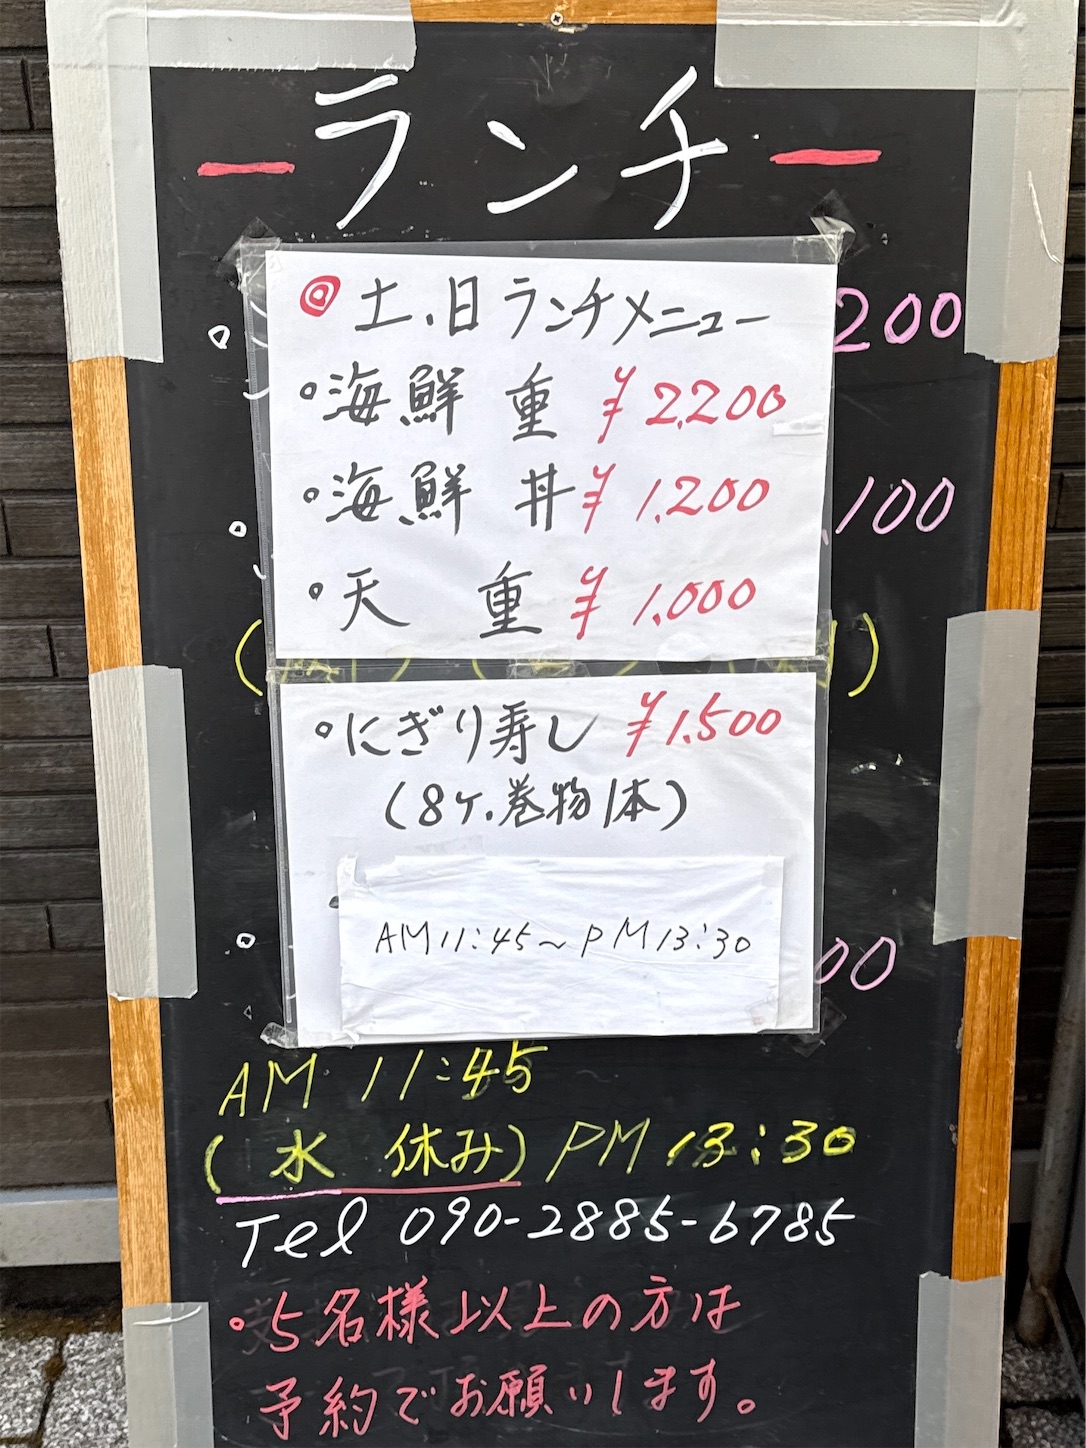 ランチ
◎ 土、日ランチメニュー
200
・海鮮重 ¥2,200
・海鮮丼 ¥1,200
100
・天重 ¥1,000
・にぎり寿し ¥1,500
(8ヶ、巻物1本)
AM11:45~PM13:30
00
AM 11:45
(水 休み) PM 13:30
Tel 090-2885-6785
・5名様以上の方は
予約でお願いします。